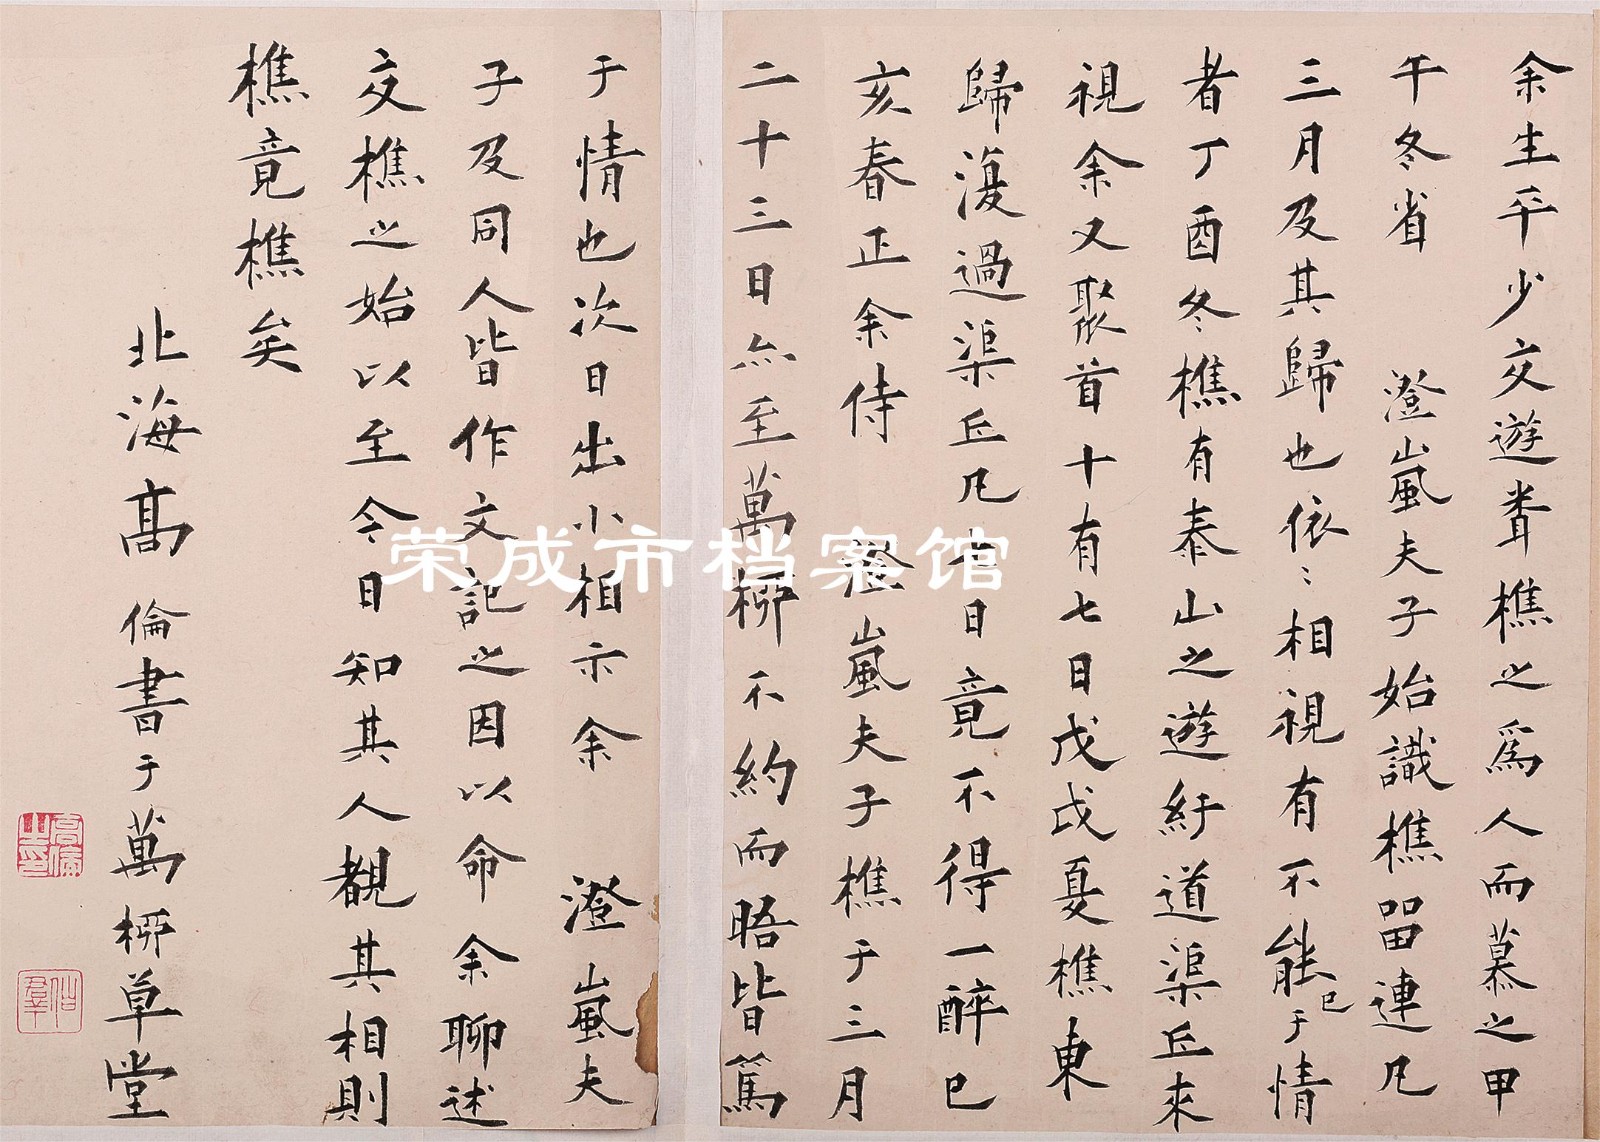 余生平少交遊聞樵之為人而慕之甲
午冬省　澄嵐夫子始識樵畱連凡
三月及其歸也依〻相視有不能已于情
者丁酉冬樵有泰山之遊紆道渠丘來
視余又聚首十有七日戊戌夏樵東
歸復過渠丘凡十日竟不得一醉已
亥春正余侍　澄嵐夫子樵于三月
二十三日亦至萬柳不約而晤皆篤
于情也次日出小相示余　澄嵐夫
子及同人皆作文記之因以命余聊述
交樵之始以至今日知其人覩其相則
樵竟樵矣
北海高倫書于萬柳草堂
高倫之印
荣成市档案馆